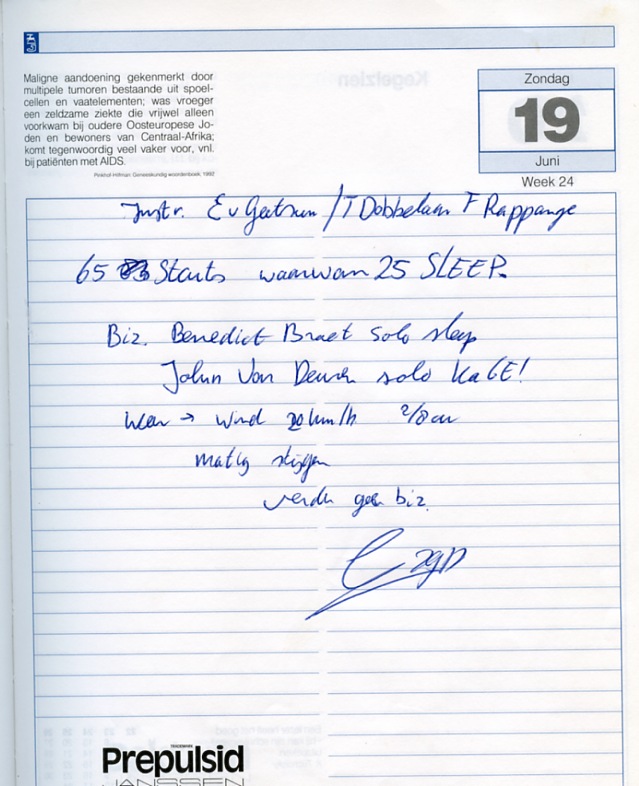 Maligne aandoening gekenmerkt door
multipele tumoren bestaande uit spoel-
cellen en vaatelementen; was vroeger
een zeldzame ziekte die vrijwel alleen
voorkwam bij oudere Oosteuropese Jo-
den en bewoners van Centraal-Afrika;
komt tegenwoordig veel vaker voor, vnl.
bij patiënten met AIDS.
Pinkhof-Hilfman: Geneeskundig woordenboek, 1992
Zondag
19
Juni
Week 24
Instr. E v / T Dobbelaere F Rappange
65 Starts waarvan 25 SLEEP.
Biz. Benedict Braet solo sleep
John Van solo Ka6E!
Weer → Wind 20 km/h 2/8 cu
matig stijgen
verder geen biz.
Prepulsid
JANSSEN